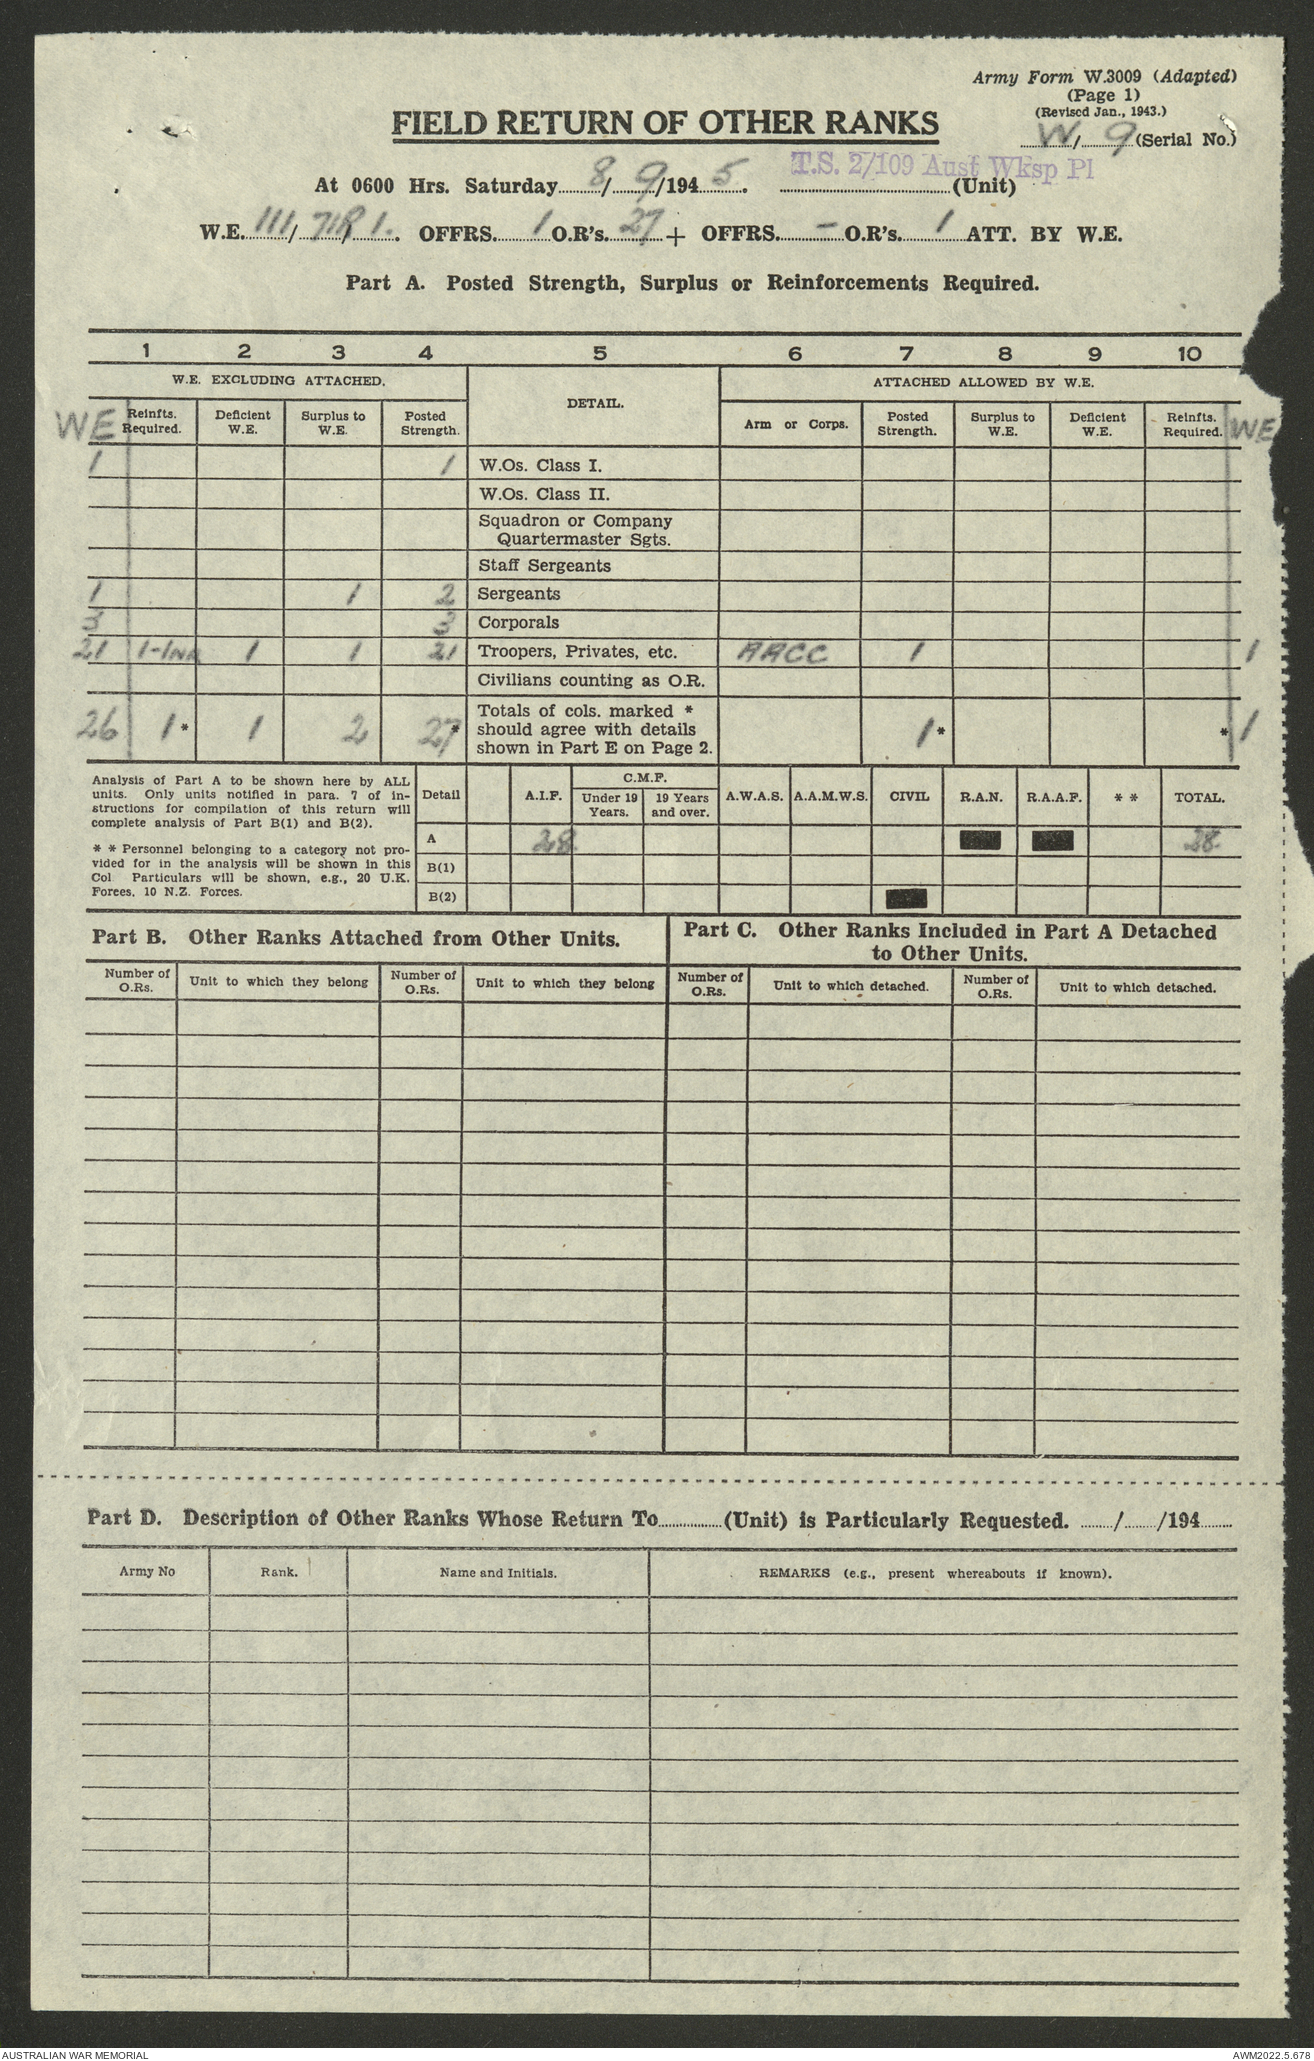 Army Form W.3009 (Adapted)
(Page 1)
(Revised Jan., 1943.)
W / 9 (Serial No.)
FIELD RETURN OF OTHER RANKS
T.S. 2/109 Aust Wksp Pl
At 0600 Hrs. Saturday 8 / 9 /194 5. (Unit)
W.E. 111/ 71R / 1. OFFRS. 1 O.R's. 27 + OFFRS. - O.R's. 1 ATT. BY W.E.
Part A. Posted Strength, Surplus or Reinforcements Required.
1 2 3 4 5 6 7 8 9 10
W.E. EXCLUDING ATTACHED. DETAIL. ATTACHED ALLOWED BY W.E.
WE Reinfts. Required. Deficient W.E. Surplus to W.E. Posted Strength. Arm or Corps. Posted Strength. Surplus to W.E. Deficient W.E. Reinfts. Required. WE
1 1 W.Os. Class I.
W.Os. Class II.
Squadron or Company
Quartermaster Sgts.
Staff Sergeants
1 1 2 Sergeants
3 3 Corporals
21 1-Inf 1 1 21 Troopers, Privates, etc. AACC 1 1
Civilians counting as O.R.
Totals of cols. marked *
26 1* 1 2 27* should agree with details 1* * 1
shown in Part E on Page 2.
Analysis of Part A to be shown here by ALL
units. Only units notified in para. 7 of in-
structions for compilation of this return will
complete analysis of Part B(1) and B(2).
* * Personnel belonging to a category not pro-
vided for in the analysis will be shown in this
Col. Particulars will be shown, e.g., 20 U.K.
Forces, 10 N.Z. Forces.
C.M.F.
Detail A.I.F. Under 19 Years. 19 Years and over. A.W.A.S. A.A.M.W.S. CIVIL R.A.N. R.A.A.F. * * TOTAL.
A 28 28
B(1)
B(2)
Part B. Other Ranks Attached from Other Units.
Part C. Other Ranks Included in Part A Detached
to Other Units.
Number of O.Rs. Unit to which they belong Number of O.Rs. Unit to which they belong Number of O.Rs. Unit to which detached. Number of O.Rs. Unit to which detached.
Part D. Description of Other Ranks Whose Return To (Unit) is Particularly Requested. / /194
Army No Rank. Name and Initials. REMARKS (e.g., present whereabouts if known).
AUSTRALIAN WAR MEMORIAL AWM2022.5.678